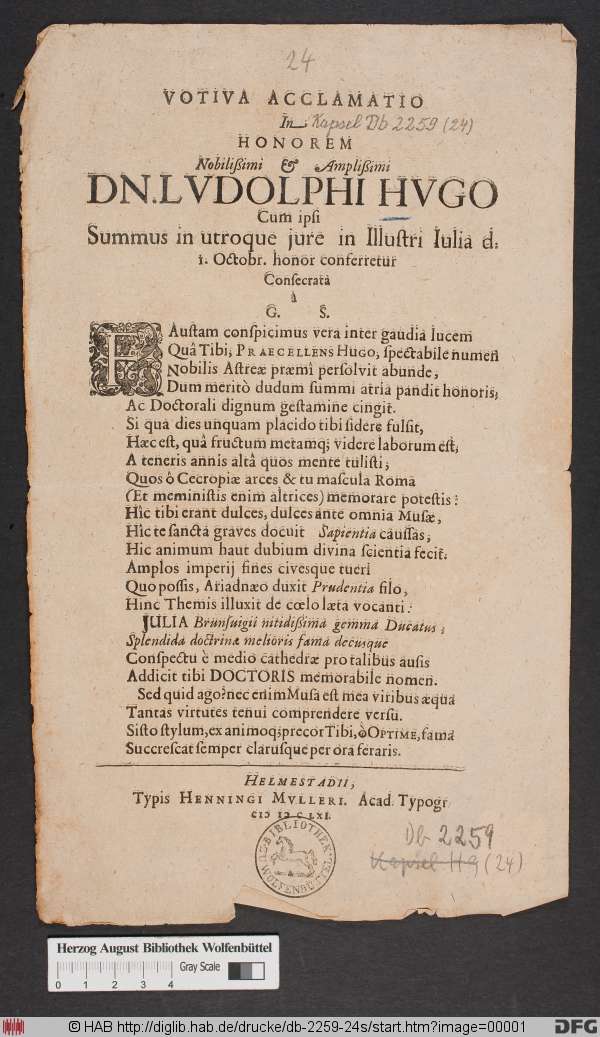 24
VOTIVA ACCLAMATIO
In Kapsel Db 2259 (24)
HONOREM
Nobilißimi & Amplißimi
DN. LVDOLPHI HVGO
Cum ipſi
Summus in utroque jure in Illuſtri Iulia d.
1. Octobr. honor conferretur
Conſecrata
à
G. S.
FAuſtam conſpicimus vera inter gaudia lucem
Quâ Tibi, PRAECELLENS HUGO, ſpectabile numen
Nobilis Aſtreæ præmî perſolvit abunde,
Dum meritò dudum ſummi atria pandit honoris,
Ac Doctorali dignum geſtamine cingit.
Si qua dies unquam placido tibi ſidere fulſit,
Hæc eſt, quâ fructum metamq; videre laborum eſt,
A teneris annis altâ quos mente tuliſti,
Quos ô Cecropiæ arces & tu maſcula Roma
(Et meminiſtis enim altrices) memorare poteſtis:
Hîc tibi erant dulces, dulces ante omnia Muſæ,
Hîc te ſancta graves docuit Sapientia cauſſas,
Hic animum haut dubium divina ſcientia fecit.
Amplos imperij fines civesque tueri
Quo poſſis, Ariadnæo duxit Prudentia filo,
Hinc Themis illuxit de cœlo læta vocanti:
JULIA Brunſuigii nitidißima gemma Ducatus,
Splendida doctrinæ melioris fama decusque
Conſpectu è medio cathedræ pro talibus auſis
Addicit tibi DOCTORIS memorabile nomen.
Sed quid ago? nec enim Muſa eſt mea viribus æqua
Tantas virtutes tenui comprendere verſu.
Siſto ſtylum, ex animoq; precor Tibi, ô OPTIME, fama
Succreſcat ſemper clarusque per ora feraris.
HELMESTADII,
Typis HENNINGI MVLLERI. Acad. Typogr.
CIƆ IƆ C LXI.
BIBLIOTHEK
WOLFENBÜTTEL
Db 2259
Kapsel H9 (24)
Herzog August Bibliothek Wolfenbüttel
Gray Scale
0 1 2 3 4
© HAB http://diglib.hab.de/drucke/db-2259-24s/start.htm?image=00001
DFG